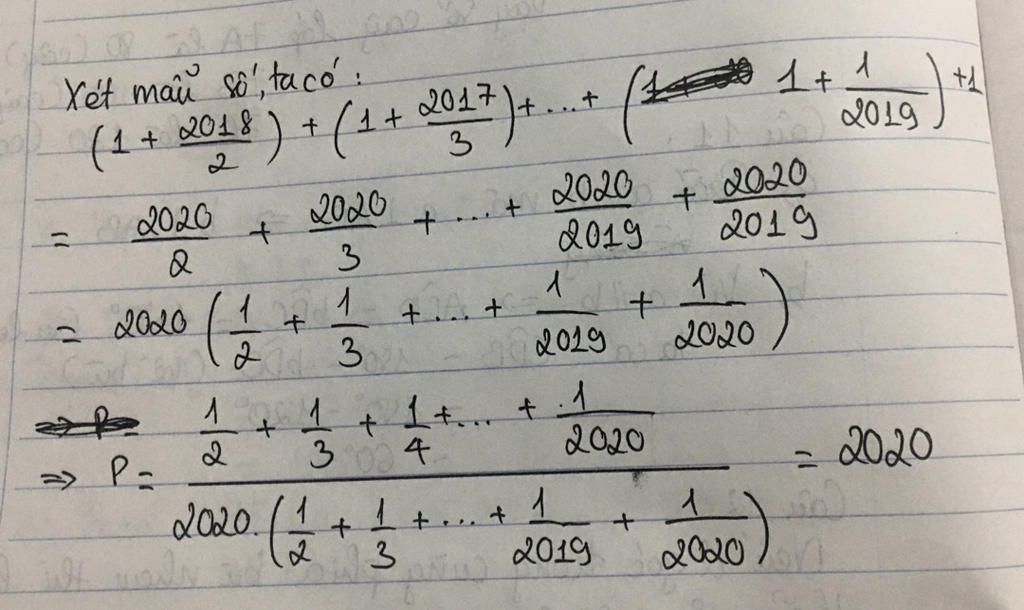 Xét mẫu số, ta có:
(1 + 2018/2) + (1 + 2017/3) + ... + (1 + 1/2019) + 1
= 2020/2 + 2020/3 + ... + 2020/2019 + 2020/2019
= 2020 (1/2 + 1/3 + ... + 1/2019 + 1/2020)
⇒ P = (1/2 + 1/3 + 1/4 + ... + 1/2020) / (2020.(1/2 + 1/3 + ... + 1/2019 + 1/2020)) = 2020